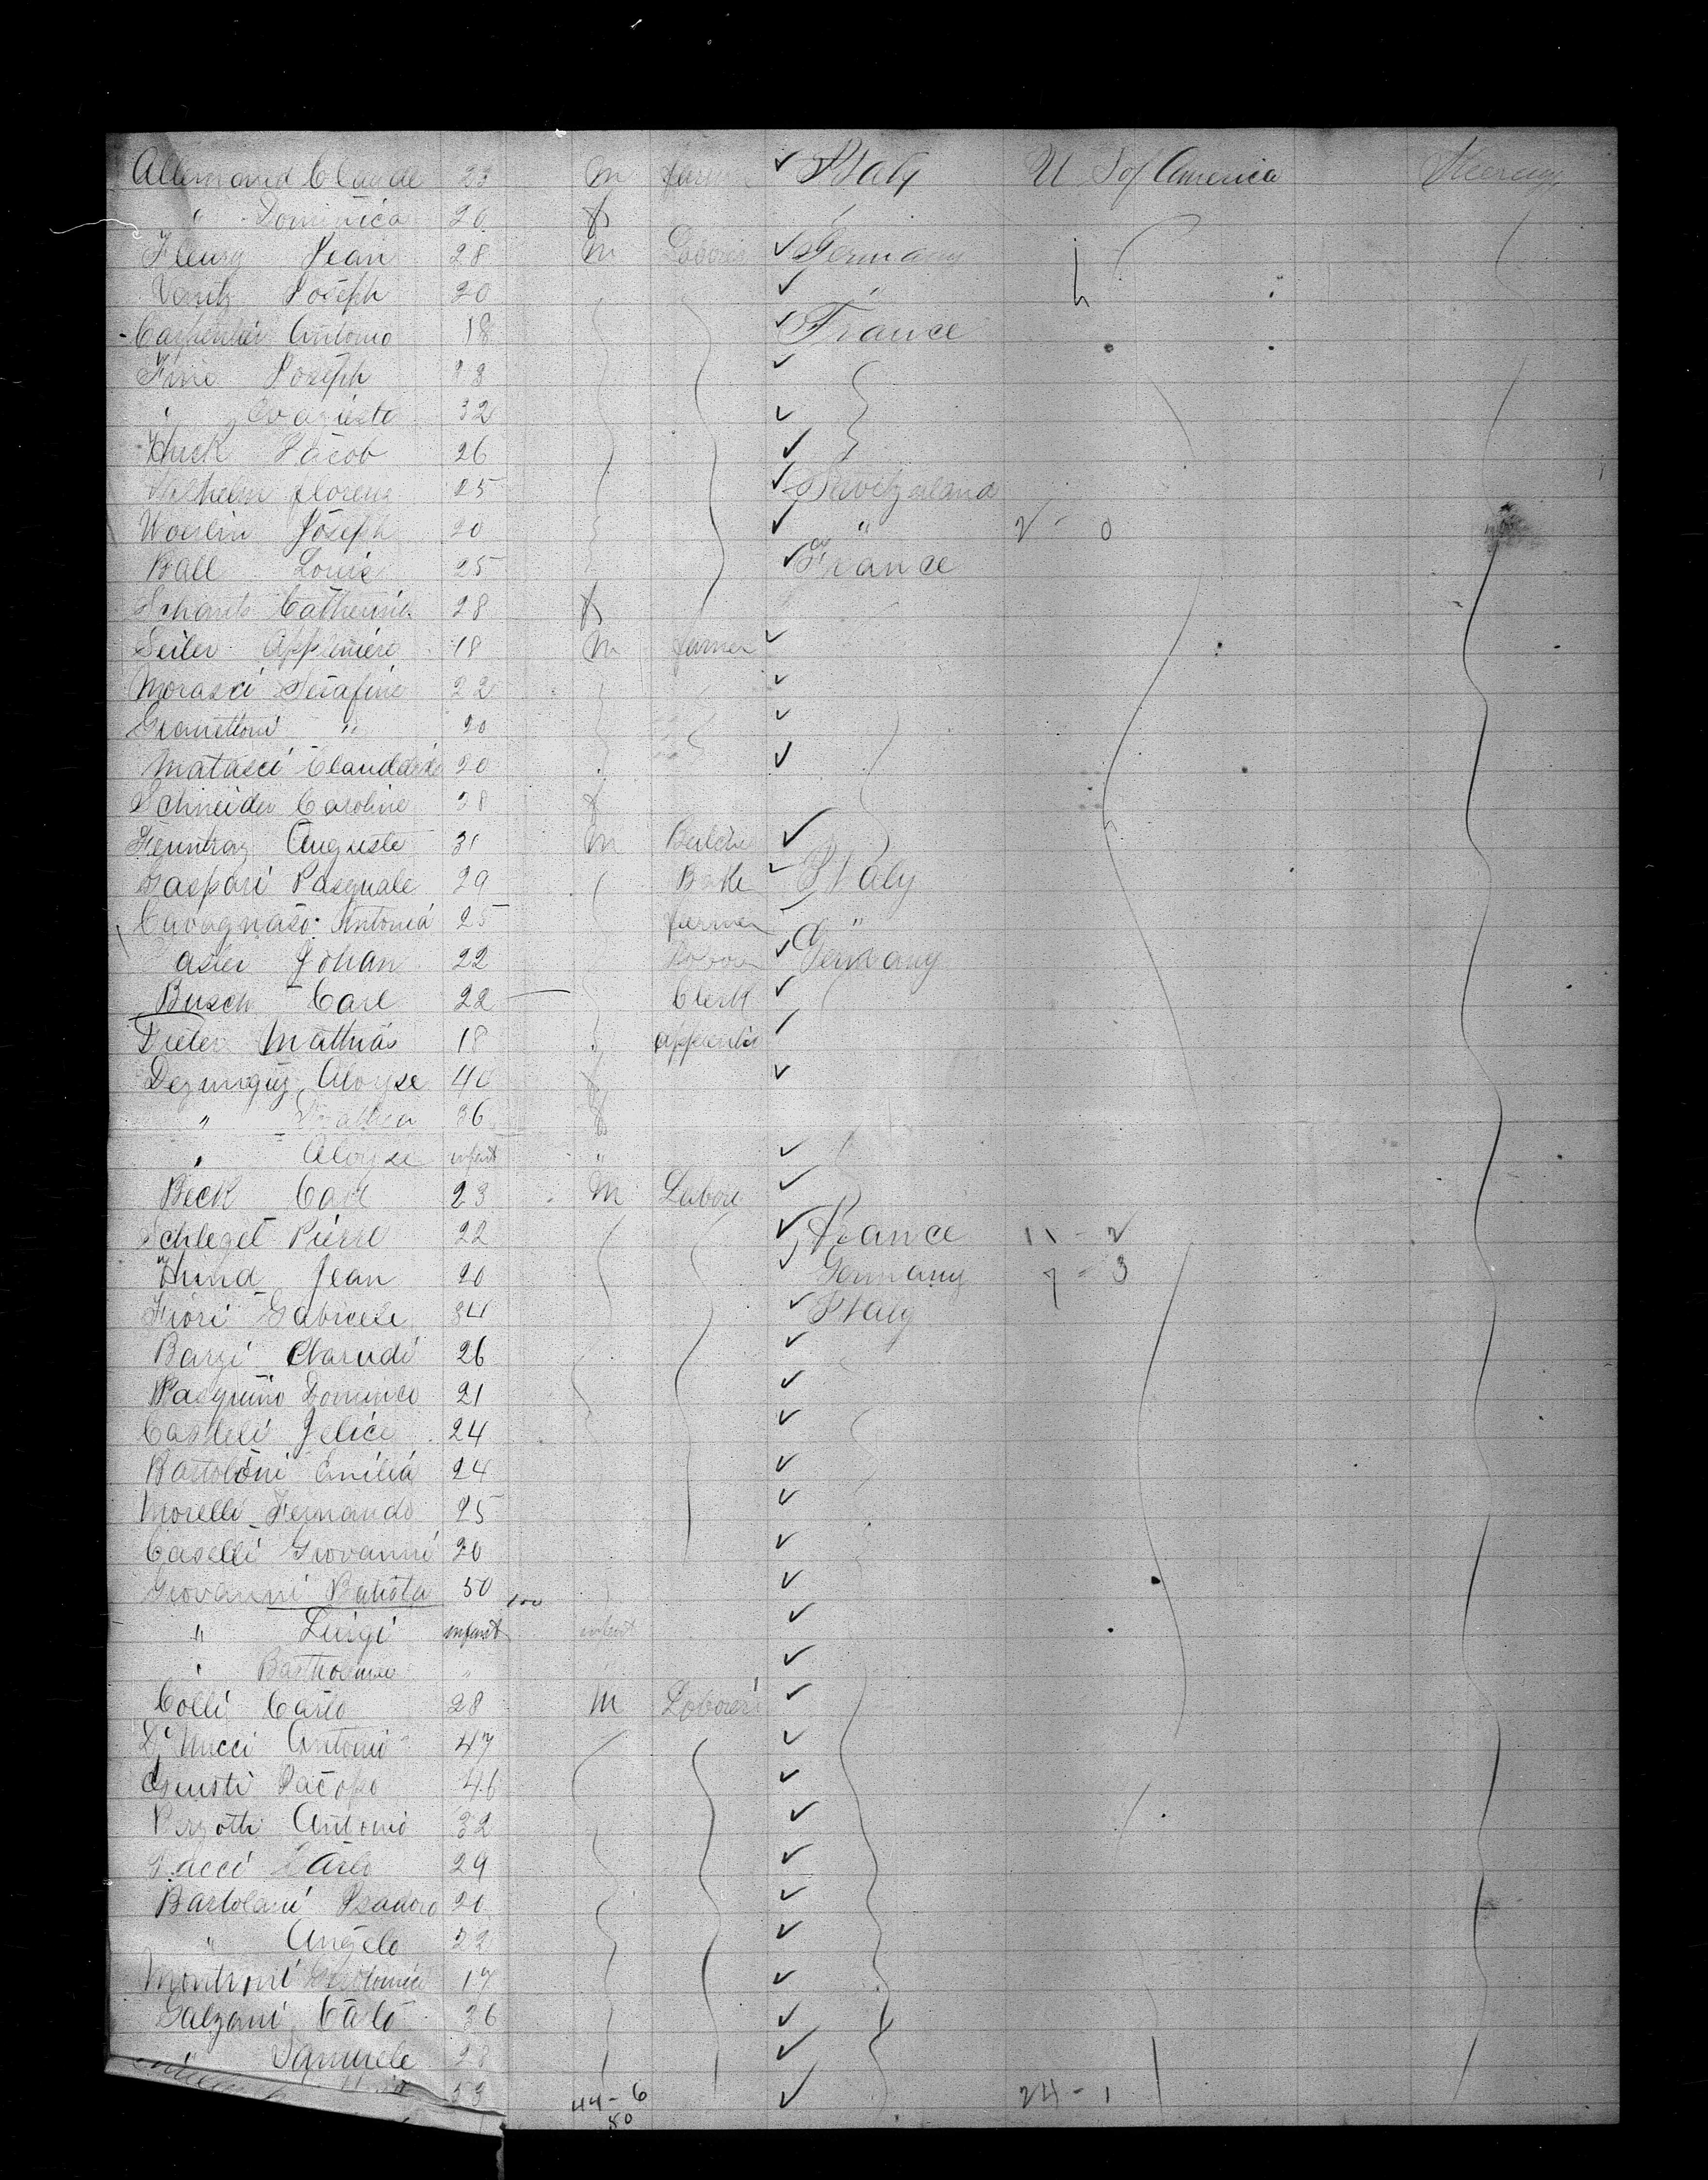 Allemand Claude 23 m farmer ✓ Italy U S of America Steerage
" Dominica 20 f
Fleury Jean 28 m Laborer ✓ Germany
Vantz Joseph 20 ✓ "
Carpentier Antonio 18 ✓ France
Fine Joseph ✓
" Evariesto 32 ✓
Huck Jacob 26 ✓
Wilhelm florenz 25 ✓ Switzerland
Woerlin Joseph 20 ✓ " 2 - 0
Ball Louis 25 ✓ France
Schantz Catherine 28 f
Seiler 18 m farmer ✓
Morasci Serafine 22 ✓
Gianettoni " 20 ✓
Matasci 20 ✓
Schneider Caroline 38 f
Auguste 31 m Butcher ✓
Gaspari Pasquale 29 Baker ✓ Italy
Cavagnaso Antonia 25 farmer "
Johan 22 Laborer ✓ Germany
Busch Carl 22 Clerk ✓
Dieter Mathias 18 ✓
Aloyse 40 ✓
" 36 f
" Aloyse infant " ✓
Beck Carl 23 m Labore ✓
Schlegel Pierre 22 ✓ France 11 - 2
Hund Jean 20 ✓ Germany 7 - 3
Fiori Gabriele 34 ✓ Italy
Barzi 26 ✓
Pasquino Dominco 21 ✓
Casteli Felice 24 ✓
Bartoloni Emilia 24 ✓
Morelli Fernando 25 ✓
Caselli Giovanni 20 ✓
Giovanni Batista 50 ✓
" Luigi infant infant ✓
" " ✓
Colli Carlo 28 m Laborer ✓
Di Nucci Antonio 47 ✓
Giusti Jacopo 46 ✓
Antonio 32 ✓
Carlo 29 ✓
Bartolani Isadoro 20 ✓
" Angelo 22 ✓
17 ✓
Galzani Carlo 36 ✓
" Samuele 28 ✓
53 44 - 6 ✓ 24 - 1
50